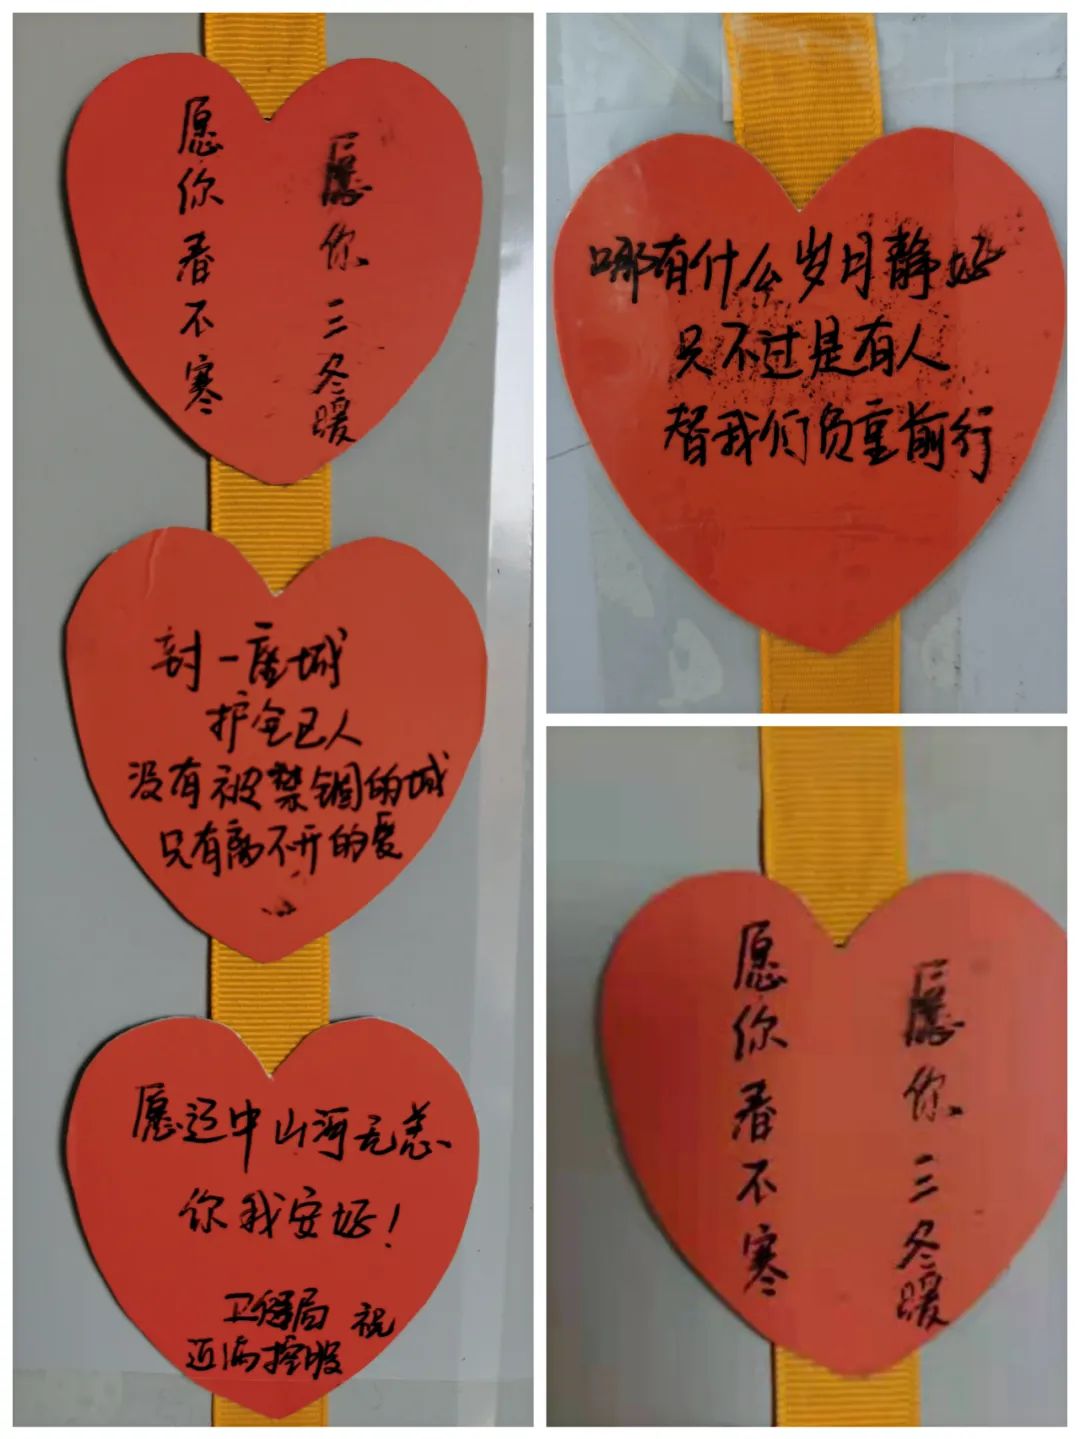 愿你三冬暖
愿你春不寒
封一座城
护
人
没有被禁锢的城
只有离不开的爱
愿辽中山河无恙
你我安好！
卫健局 祝
近海控股
哪有什么岁月静好
只不过是有人
替我们负重前行
愿你三冬暖
愿你春不寒